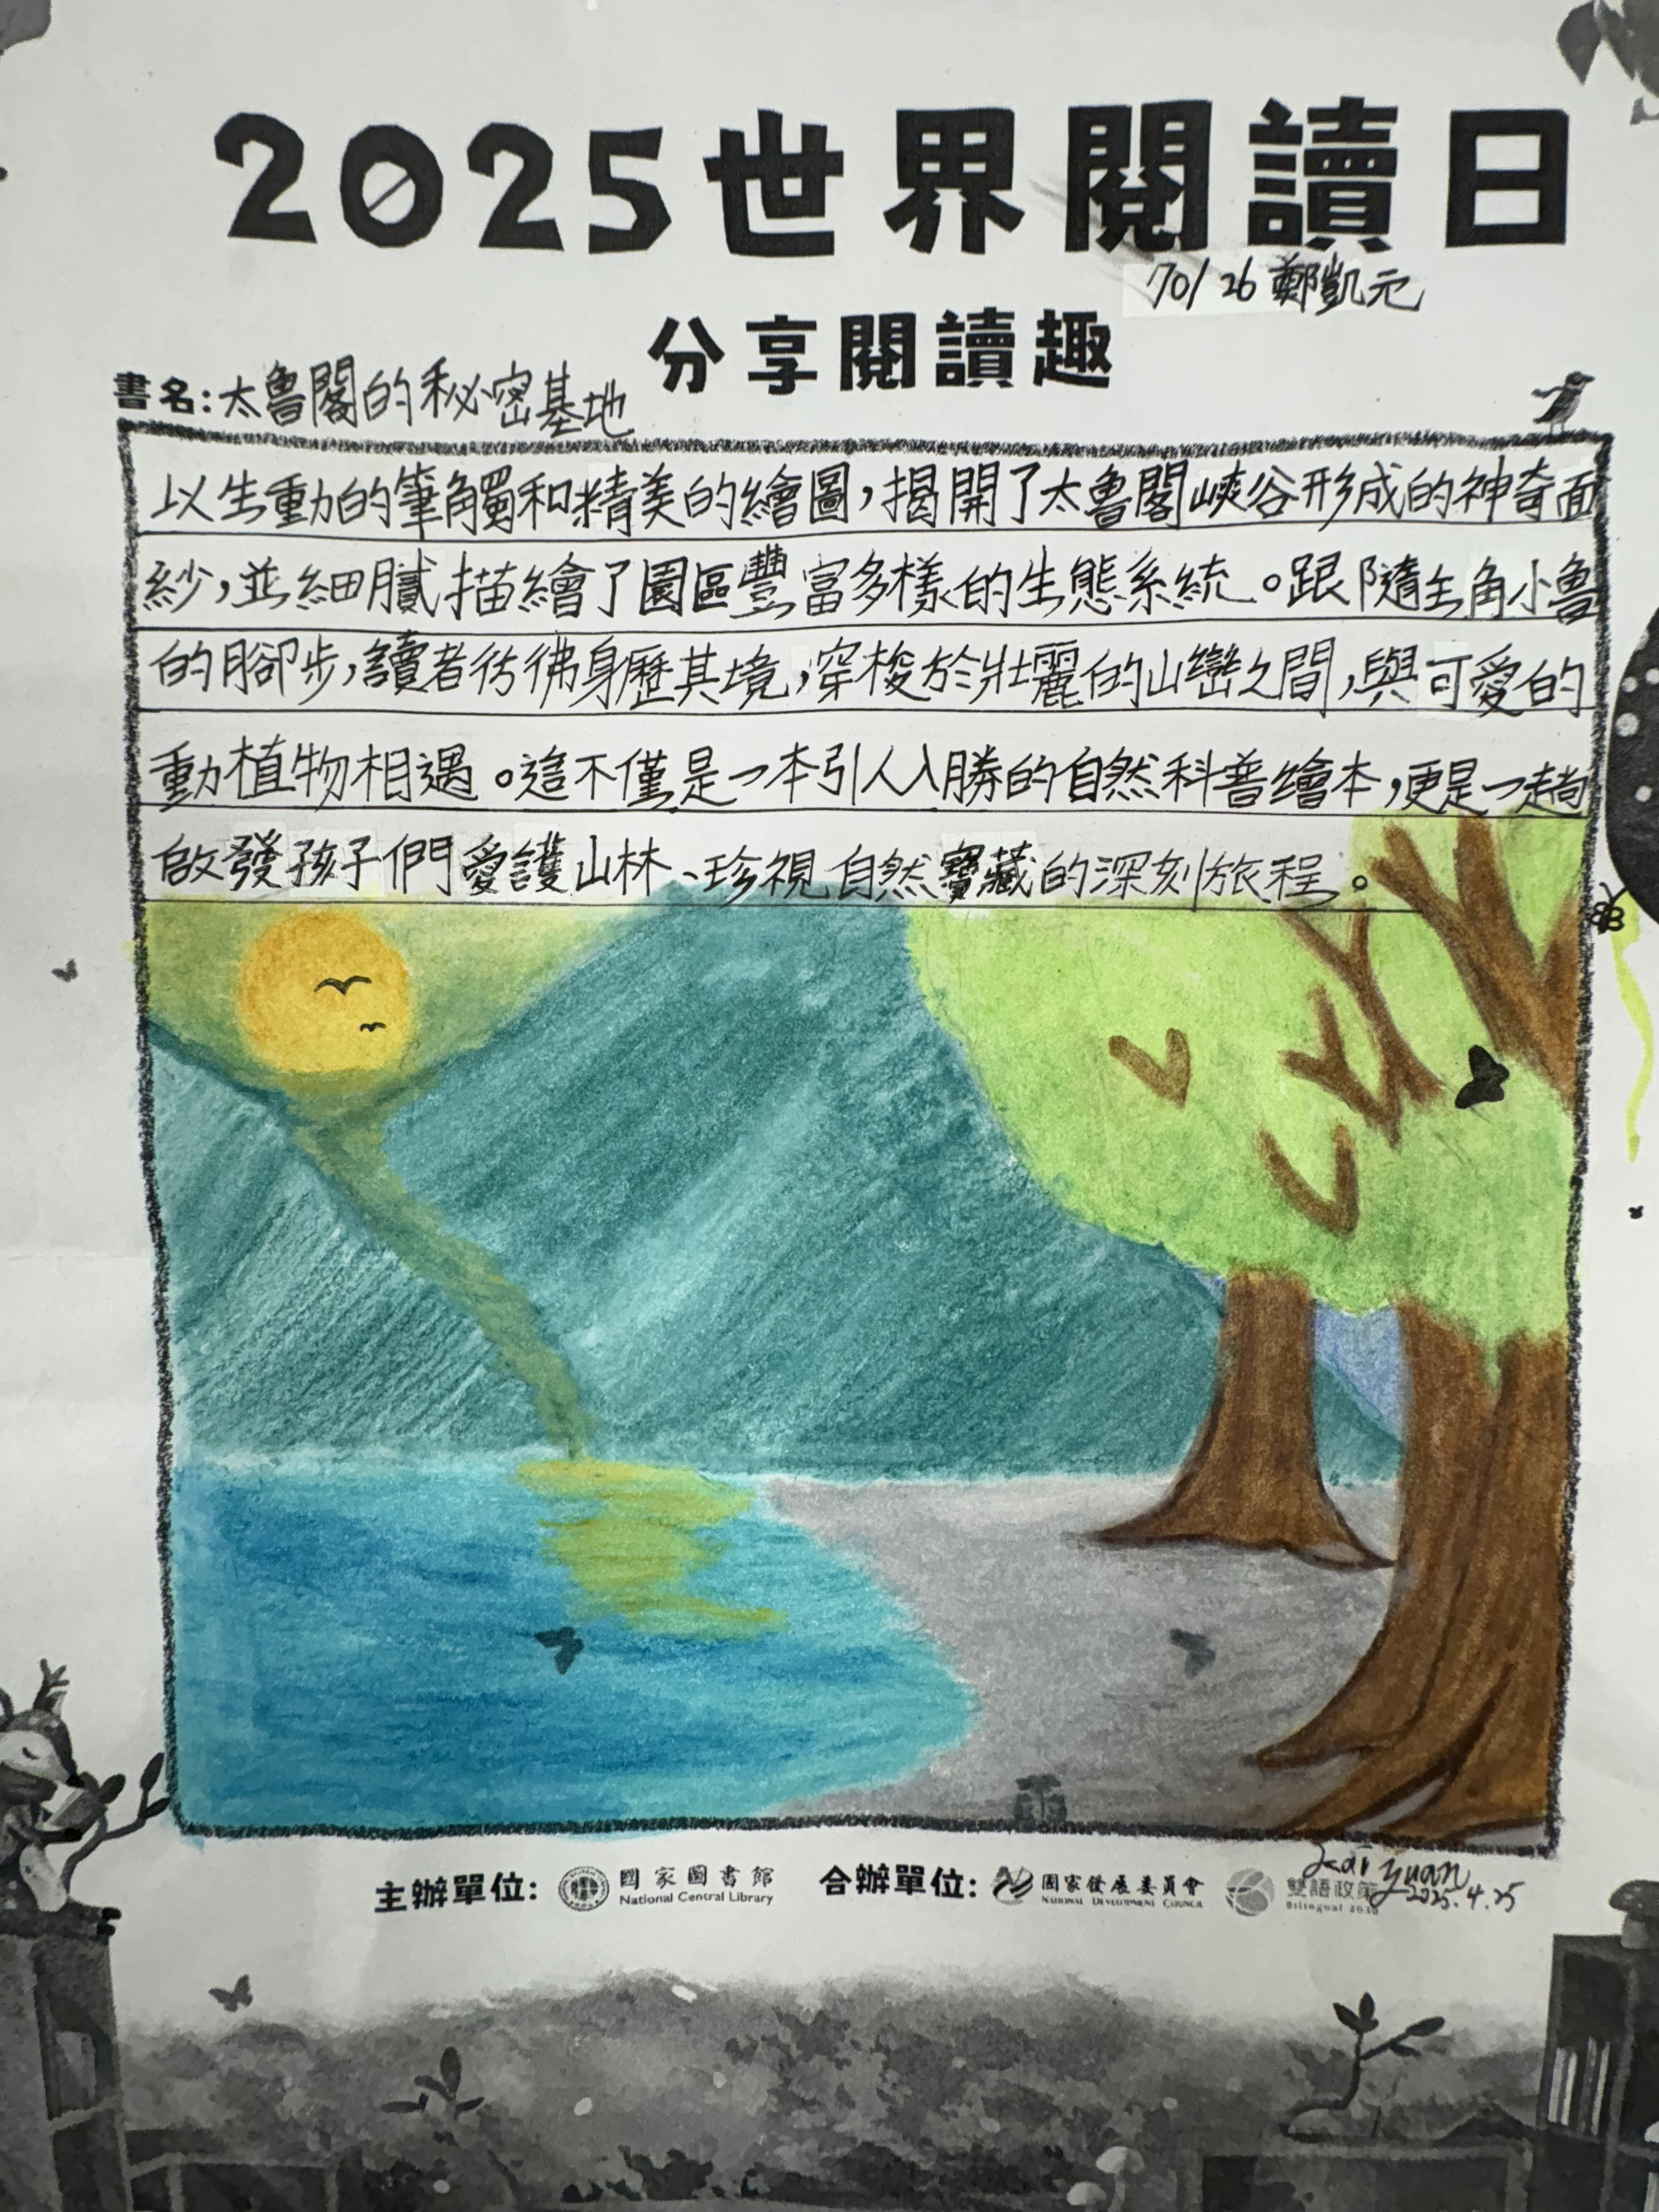 2025世界閱讀日
70126鄭凱元
分享閱讀趣
書名:太魯閣的秘密基地
以生動的筆觸和精美的繪圖,揭開了太魯閣峽谷形成的神奇面
紗,並細膩描繪了園區豐富多樣的生態系統。跟隨主角小魯
的腳步,讀者彷彿身歷其境,穿梭於壯麗的山巒之間,與可愛的
動植物相遇。這不僅是一本引人入勝的自然科普繪本,更是一趟
啟發孩子們愛護山林、珍視自然寶藏的深刻旅程。
Kai Yuan
2025.4.25
主辦單位: 國家圖書館 National Central Library 合辦單位: 國家發展委員會 National Development Council 雙語政策 Bilingual 2030